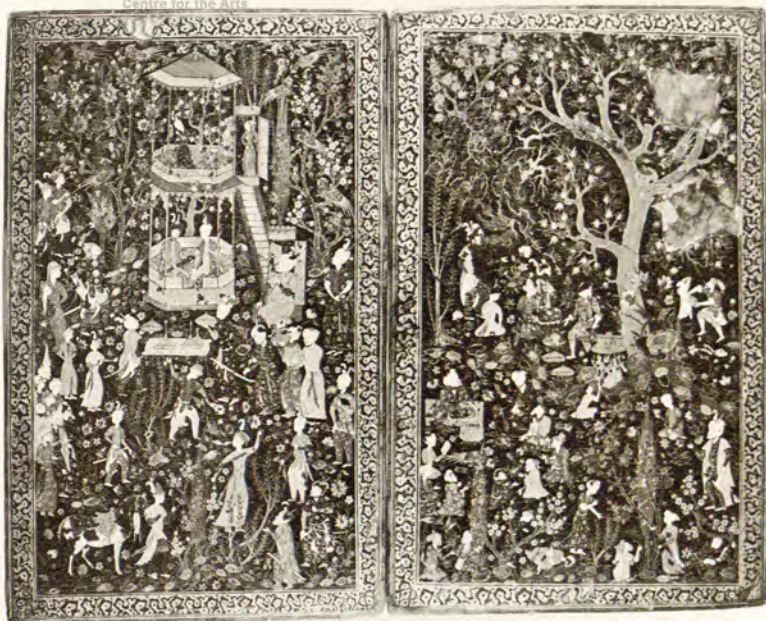 Centre for the Arts